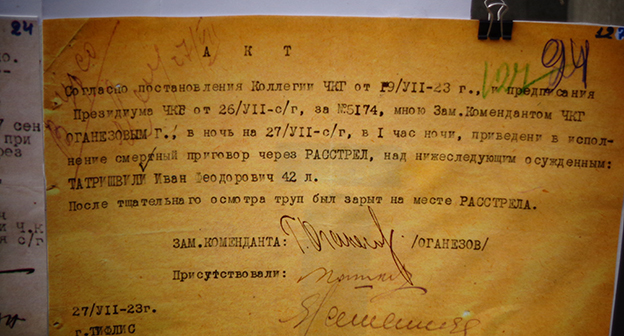 24
127
94
А К Т
Согласно постановления Коллегии ЧКГ от I9/VII-23 г., предписания
Президиума ЧКГ от 26/VII-с/г, за №5I74, мною Зам.Комендантом ЧКГ
ОГАНЕЗОВЫМ Г., в ночь на 27/VII-с/г, в I час ночи, приведен в испол-
нение смертный приговор через РАССТРЕЛ, над нижеследующим осужденным:
ТАТРИШВИЛИ Иван Феодорович 42 л.
После тщательнаго осмотра труп был зарыт на месте РАССТРЕЛА.
ЗАМ.КОМЕНДАНТА: /ОГАНЕЗОВ/
Присутствовали:
27/VII-23г.
г.ТИФЛИС
7 сен
при
рез
ч.к
с/г